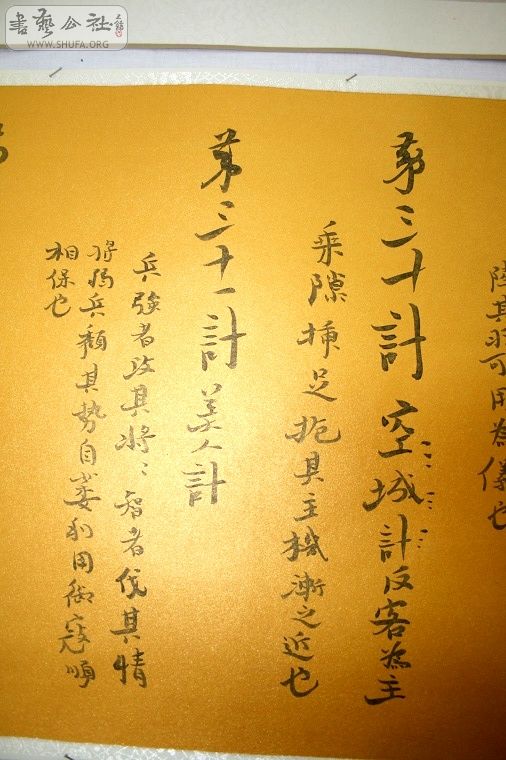 書藝公社
WWW.SHUFA.ORG
陸其羽可用為儀也
第三十計空城計反客為主
乘隙插足扼其主機漸之近也
第三十一計美人計
兵強者攻其將：智者伐其情
將弱兵頹其勢自萎利用御寇順
相保也